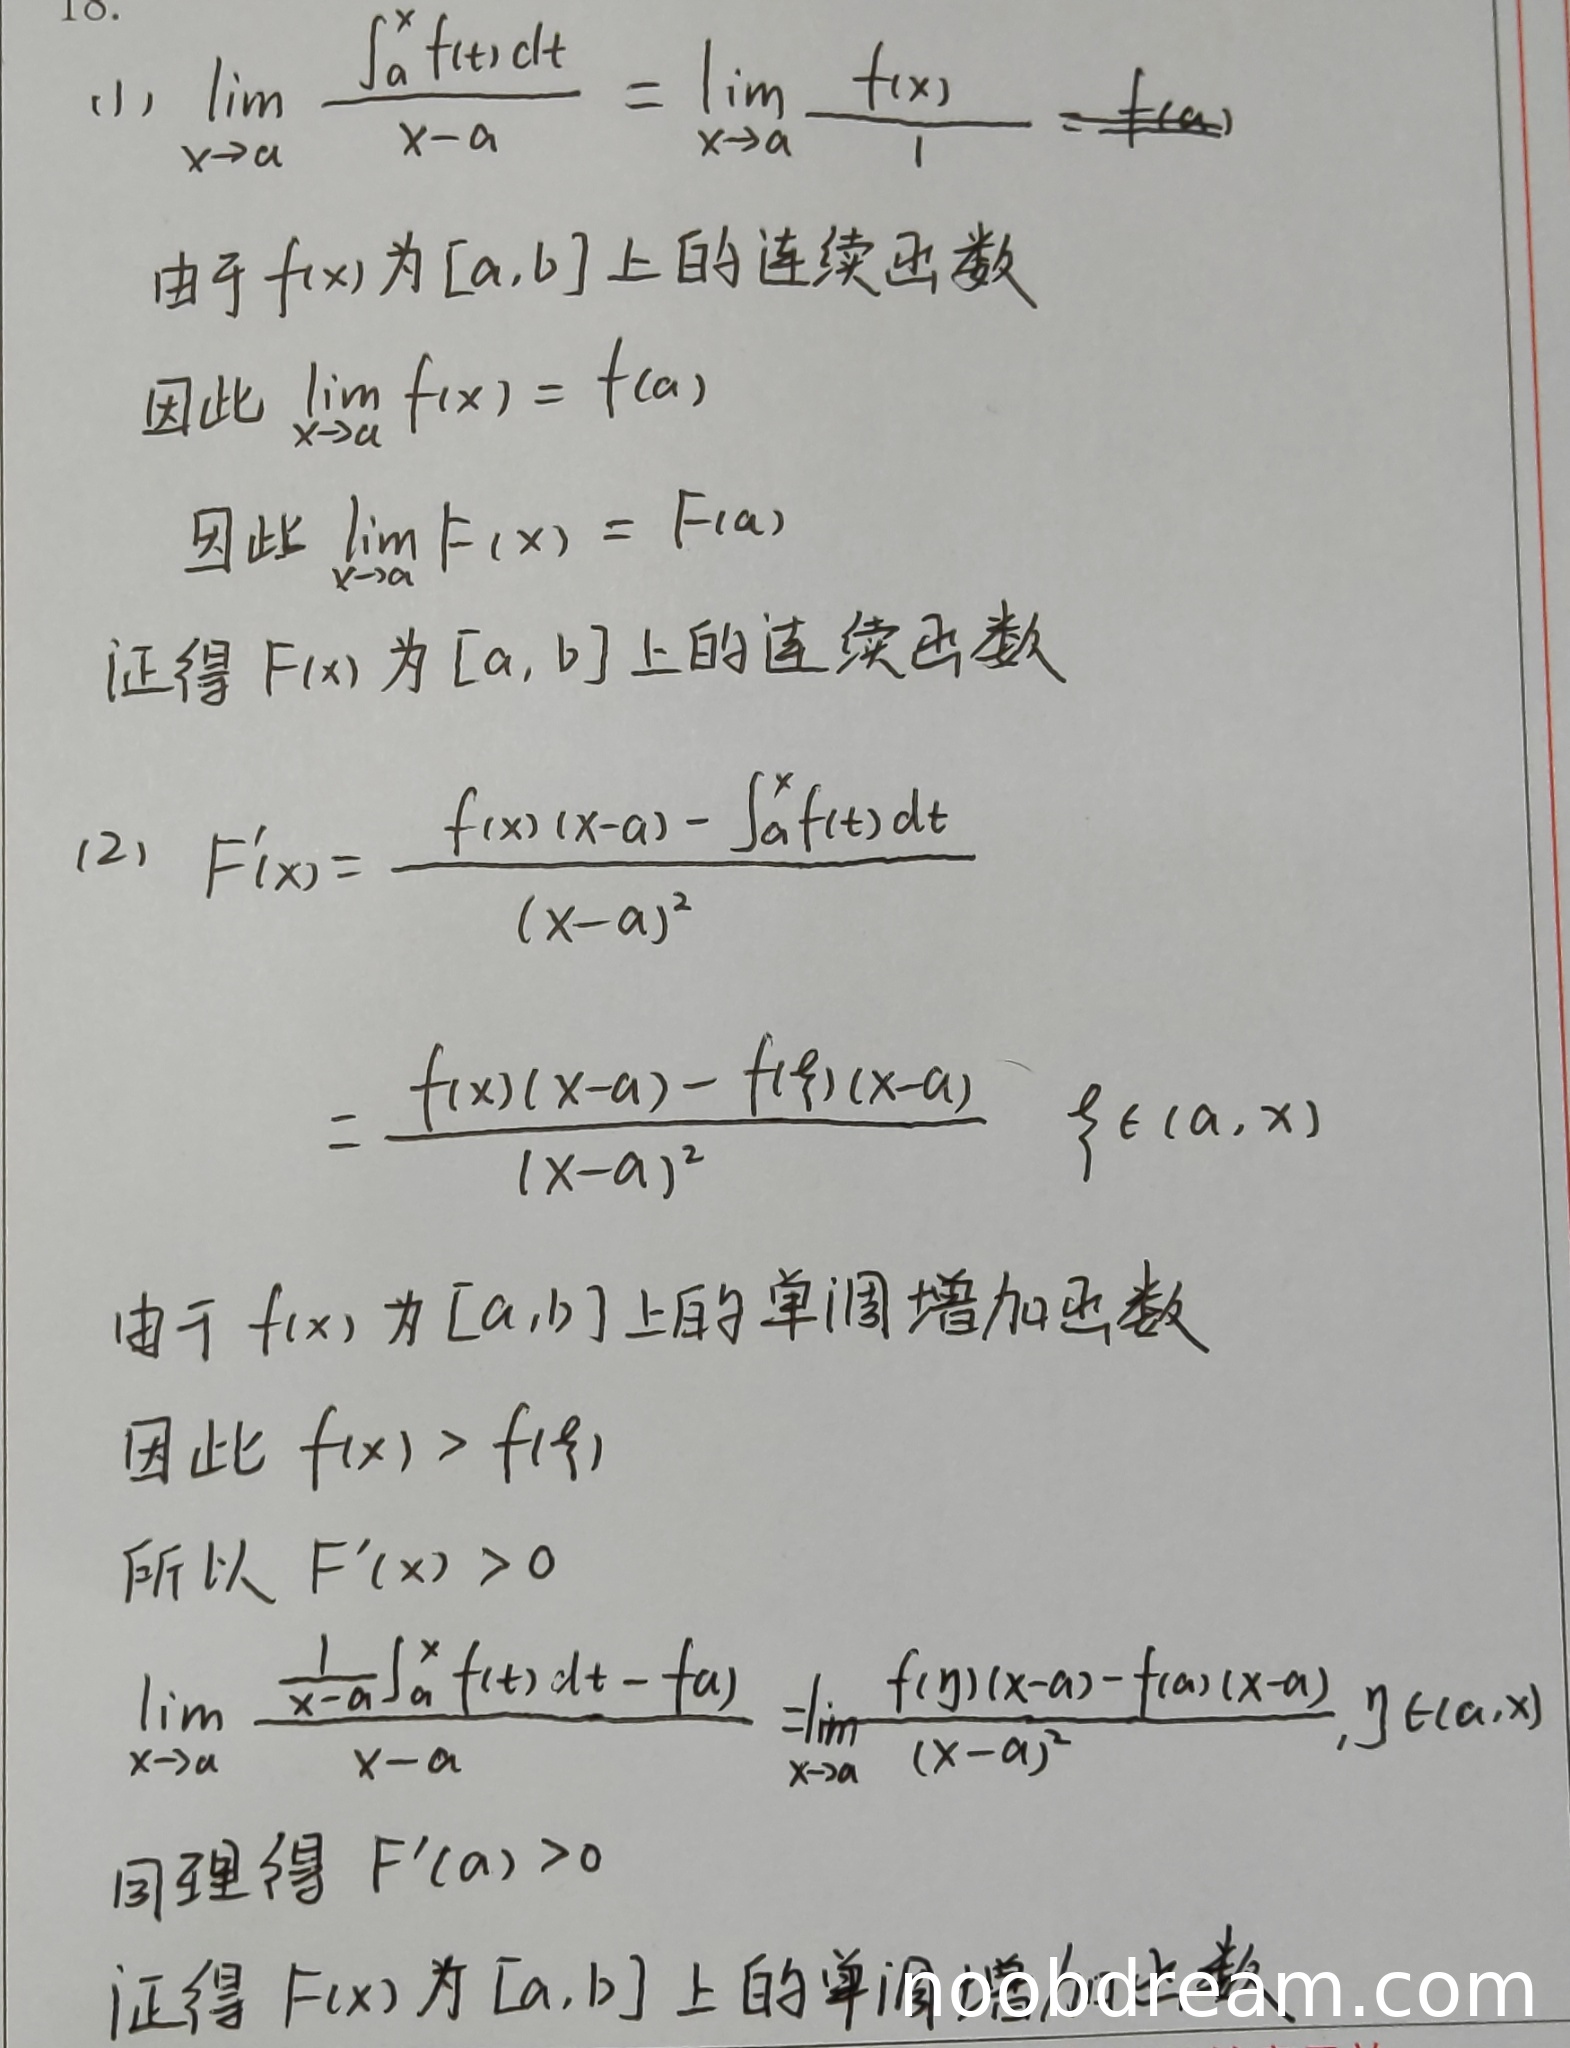 18.
(1) lim x→a ∫ₐˣ f(t)dt / (x-a) = lim x→a f(x)/1 = f(a)
由于 f(x) 为 [a,b] 上的连续函数
因此 lim x→a f(x) = f(a)
因此 lim x→a F(x) = F(a)
证得 F(x) 为 [a,b] 上的连续函数
(2) F'(x) = (f(x)(x-a) - ∫ₐˣ f(t)dt) / (x-a)²
= (f(x)(x-a) - f(ξ)(x-a)) / (x-a)² ξ∈(a,x)
由于 f(x) 为 [a,b] 上的单调增加函数
因此 f(x) > f(ξ)
所以 F'(x) > 0
lim x→a (1/(x-a) ∫ₐˣ f(t)dt - f(a)) / (x-a) = lim x→a (f(η)(x-a) - f(a)(x-a)) / (x-a)², η∈(a,x)
同理得 F'(a) > 0
证得 F(x) 为 [a,b] 上的单调增加函数
noobdream.com